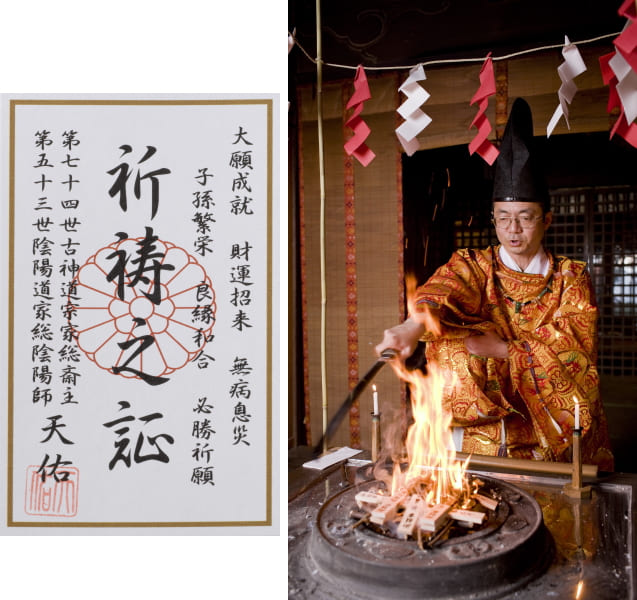 大願成就　財運招来　無病息災
子孫繁栄　良縁和合　必勝祈願
祈祷之証
第七十四世古神道宗家総斎主
第五十三世陰陽道家総陰陽師
天佑